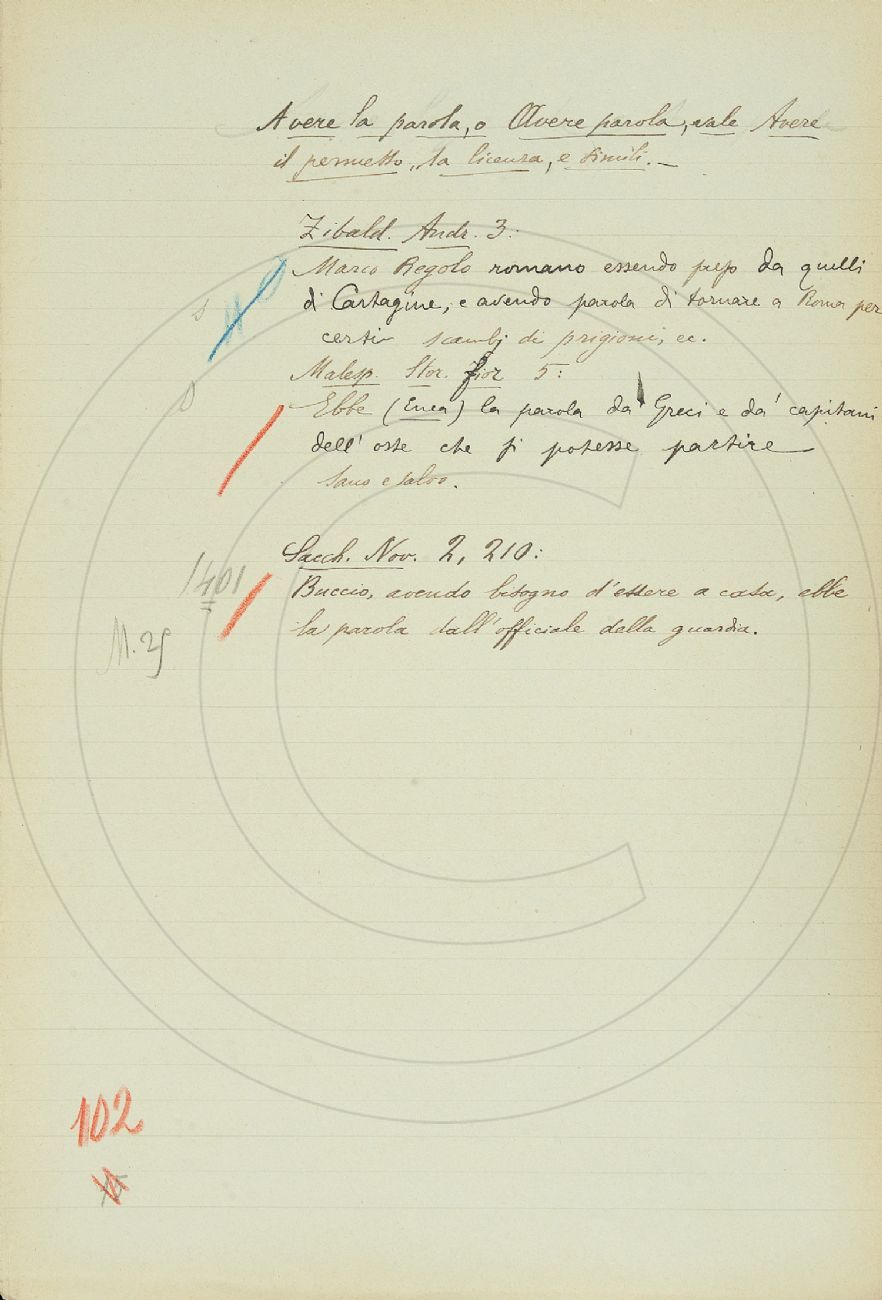 Avere la parola, o Avere parola, vale Avere
il permesso, la licenza, e simili. —
Zibald. Andr. 3:
Marco Regolo romano essendo preso da quelli
di Cartagine, e avendo parola di tornare a Roma per
certi scambj di prigioni, ec.
Malesp. Stor. Fior 5:
Ebbe (Enea) la parola da' Greci e da' capitani
dell' oste che si potesse partire
sano e salvo.
Sacch. Nov. 2, 210:
1401
Buccio, avendo bisogno d'essere a casa, ebbe
la parola dall'officiale della guardia.
102